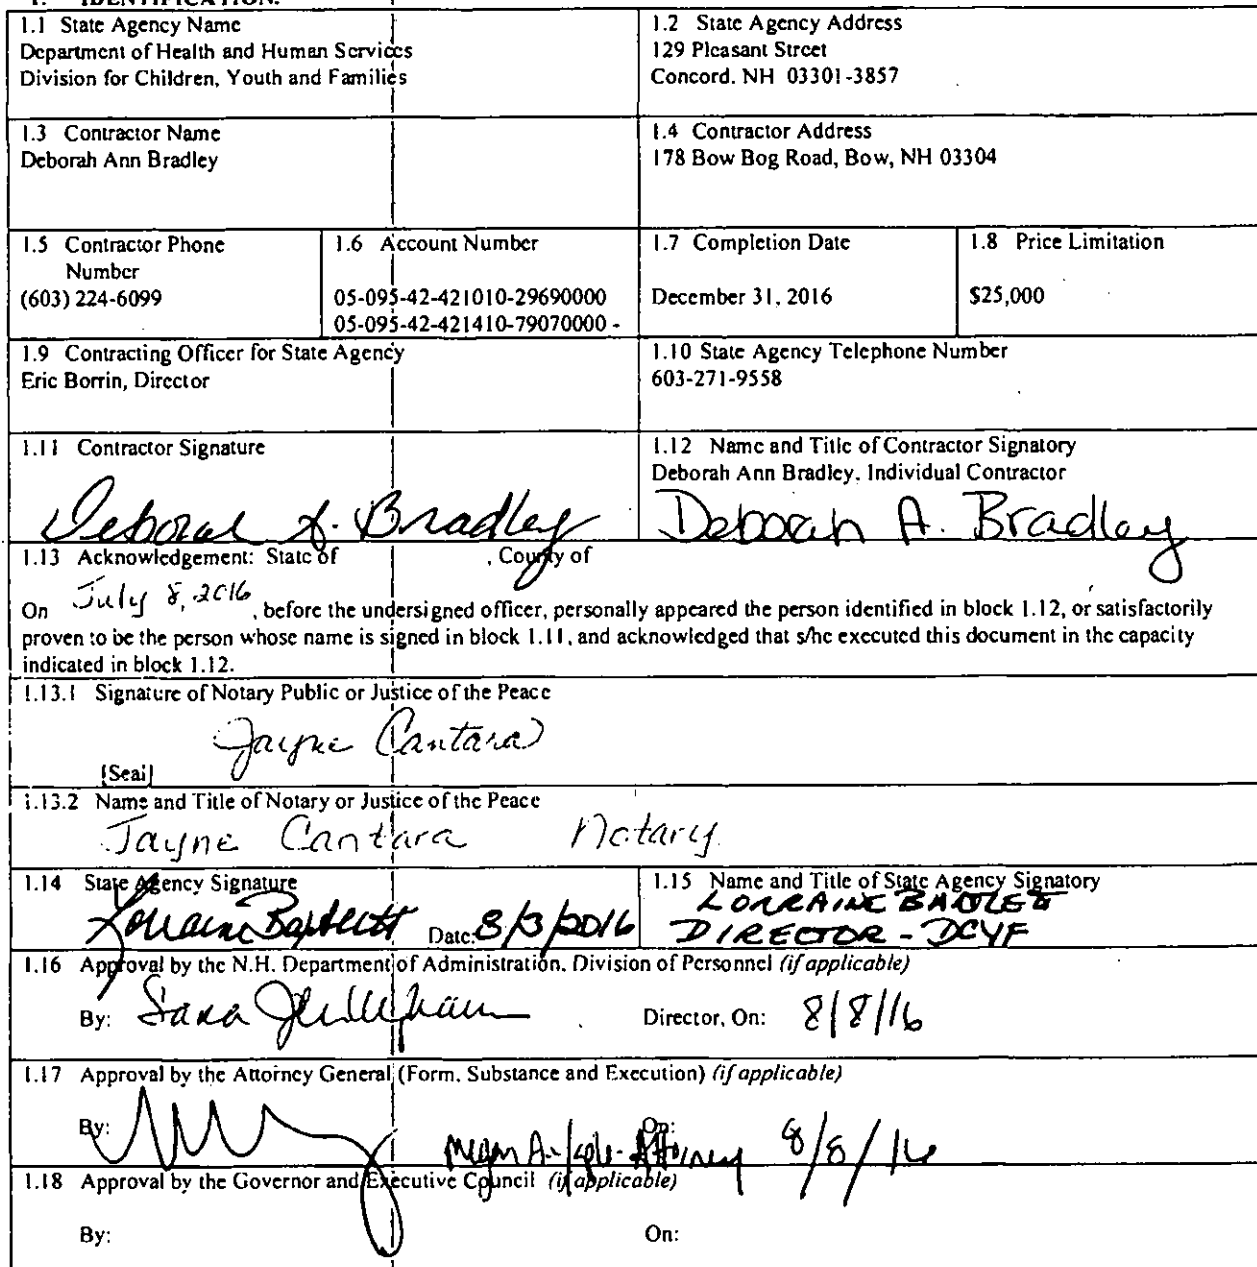 1. IDENTIFICATION.
1.1 State Agency Name
Department of Health and Human Services
Division for Children, Youth and Families
1.2 State Agency Address
129 Pleasant Street
Concord, NH 03301-3857
1.3 Contractor Name
Deborah Ann Bradley
1.4 Contractor Address
178 Bow Bog Road, Bow, NH 03304
1.5 Contractor Phone
Number
(603) 224-6099
1.6 Account Number
05-095-42-421010-29690000
05-095-42-421410-79070000 -
1.7 Completion Date
December 31, 2016
1.8 Price Limitation
$25,000
1.9 Contracting Officer for State Agency
Eric Borrin, Director
1.10 State Agency Telephone Number
603-271-9558
1.11 Contractor Signature
Deborah A. Bradley
1.12 Name and Title of Contractor Signatory
Deborah Ann Bradley, Individual Contractor
Deborah A. Bradley
1.13 Acknowledgement: State of , County of
On July 8, 2016, before the undersigned officer, personally appeared the person identified in block 1.12, or satisfactorily
proven to be the person whose name is signed in block 1.11, and acknowledged that s/he executed this document in the capacity
indicated in block 1.12.
1.13.1 Signature of Notary Public or Justice of the Peace
Jayne Cantara
[Seal]
1.13.2 Name and Title of Notary or Justice of the Peace
Jayne Cantara Notary
1.14 State Agency Signature
Lorraine Bartlett Date: 8/3/2016
1.15 Name and Title of State Agency Signatory
LORRAINE BARTLETT
DIRECTOR - DCYF
1.16 Approval by the N.H. Department of Administration, Division of Personnel (if applicable)
By: Sara Director, On: 8/8/16
1.17 Approval by the Attorney General (Form, Substance and Execution) (if applicable)
By: On:
Megan A. - Attorney 8/8/16
1.18 Approval by the Governor and Executive Council (if applicable)
By: On: